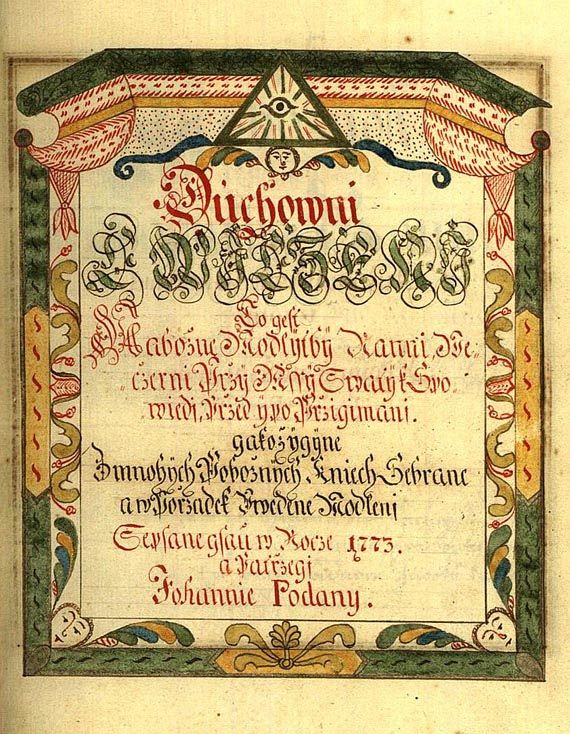 Duchowni
KWJCŽENJ
To gest
Nabožne Modlytby Ranni, We-
czerni Przy Mssy Swaty k Spo
wiedi, Przed y po Przigimani.
gakožygyne
Z mnohych Pobožnych Kniech Sebrane
a w Porzadek Uwedene Modleni
Sepsane gsau w Rocze 1773.
a Patrzegi
Johannie Podany.